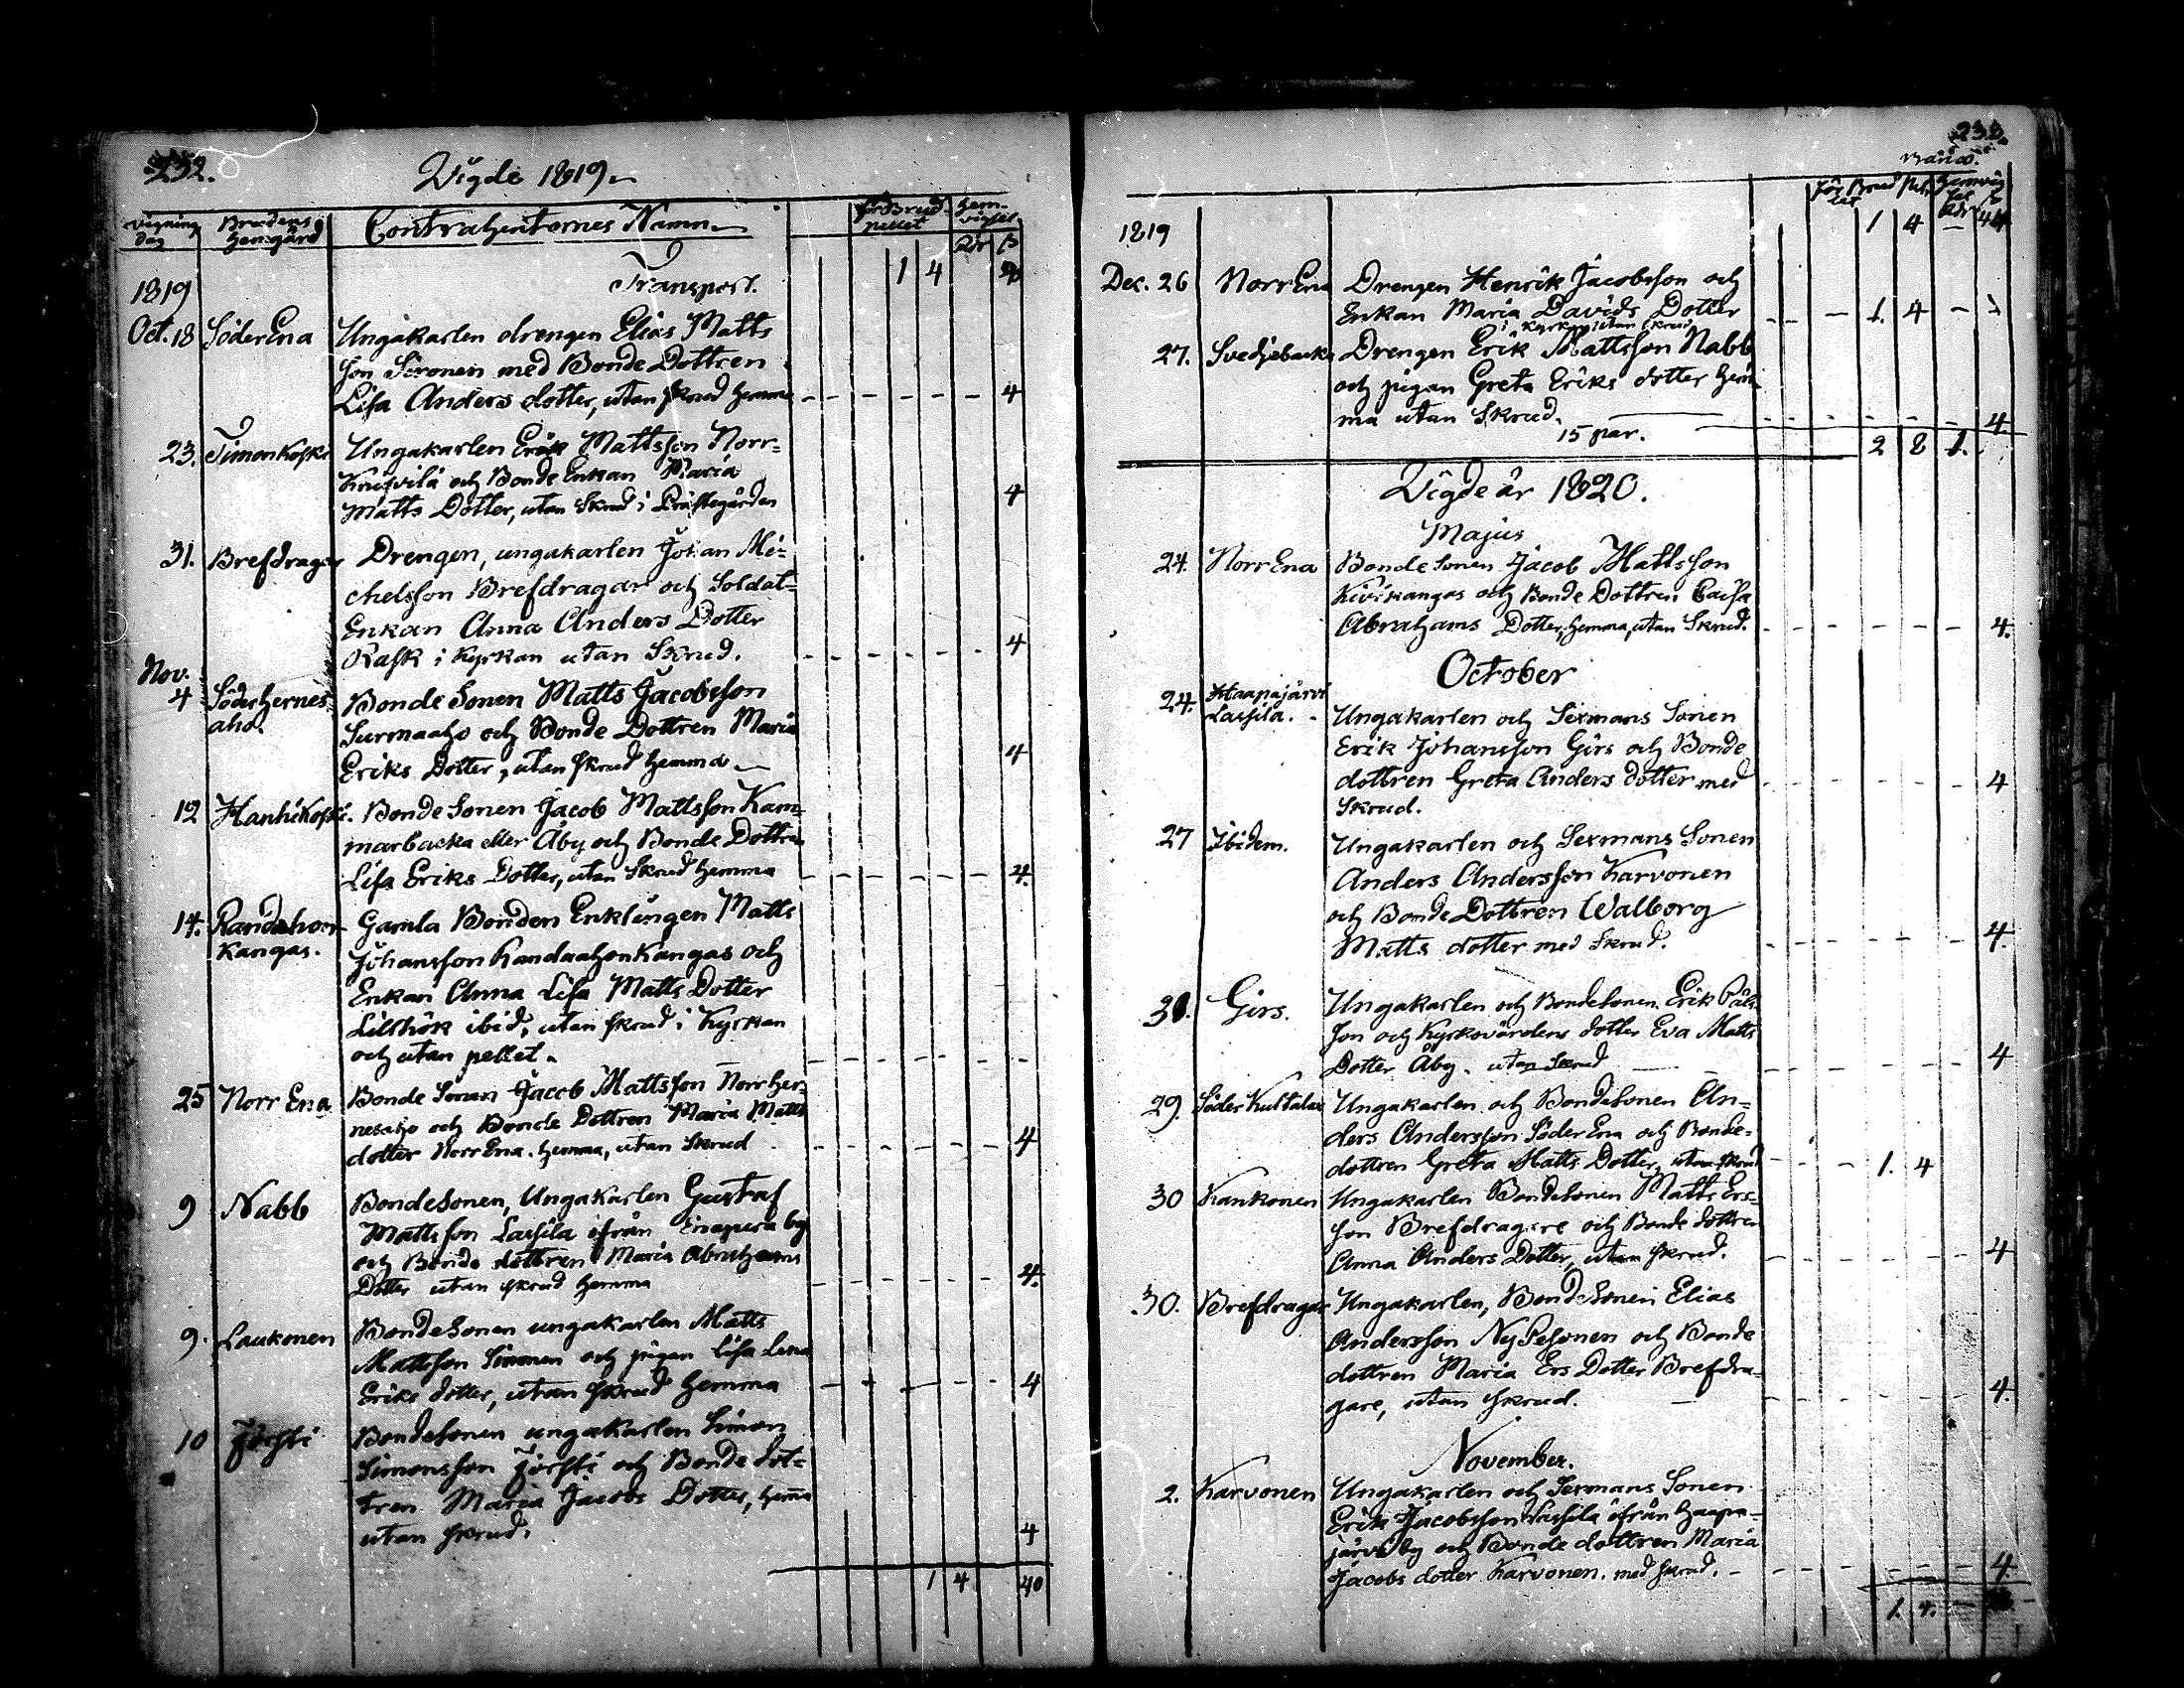 252.
Vigde 1819.
Vigning dag
Brudens hemgård
Contrahenternes Namn
för Brud pellet
Hem-vigsel
Rdr ß
1819
Transport. 1 4
Oct. 18 Söder Ena Ungakarlen drengen Elias Matts
son Sironen med Bonde Dottren
Lisa Anders dotter, utan skrud hemma 4
23. Timonkoski Ungakarlen Erik Mattsson Norr-
Knuivila och Bonde Enkan Maria
Matts Dotter, utan Skrud i Prästegården 4
31. Brefdragar Drengen, ungakarlen Johan Mi-
chelsson Brefdragar och Soldat-
Enkan Anna Anders Dotter
Rask i Kyrkan utan Skrud. 4
Nov.
4 Söderhernes Bonde Sonen Matts Jacobsson
aho. Surmaaho och Bonde Dottren Maria
Eriks Dotter, utan skrud hemma 4
12 Hanhikoski. Bonde Sonen Jacob Mattsson Kam-
marbacka eller Åby och Bonde Dottren
Lisa Eriks Dotter, utan Skrud hemma 4.
14. Randahon Gamla Bonden Enklingen Matts
kangas. Johansson Randaahonkangas och
Enkan Anna Lisa Matts Dotter
Lillhök ibid. utan skrud i Kyrkan
och utan pellet.
25 Norr Ena Bonde Sonen Jacob Mattsson Norrher-
nesaho och Bonde Dottren Maria Matts
dotter Norr Ena. hemma, utan Skrud 4
9 Nabb BondeSonen, Ungakarlen Gustaf
Mattsson Lassila ifrån by
och Bonde dottren Maria Abrahams
Dotter utan skrud hemma 4.
9. Laukonen BondeSonen ungakarlen Matts
Mattsson Simonen och pigan Lisa Lena
Eriks dotter, utan skrud hemma 4
10 BondeSonen ungakarlen Simon
Simonsson och Bonde Dot-
tren Maria Jacobs Dotter, hemma
utan skrud. 4
1 4 40
För Brud pellet
Hemvigsel
Rdr ß
1819 1 4 — 44
Dec. 26 Norr Ena Drengen Henrik Jacobsson och
Enkan Maria Davids Dotter 1. 4
i Kyrkan utan Skrud
27. Svedjebacka Drengen Erik Mattsson Nabb
och pigan Greta Eriks dotter hem
ma utan Skrud. 4
15 par. 2 8 1.
Vigde år 1820.
Majus
24. Norr Ena Bonde Sonen Jacob Mattsson
Kivikangas och Bonde Dottren Caisa
Abrahams Dotter, hemma, utan Skrud. 4.
October
24. Haapajärvi
Lassila. Ungakarlen och Sexmans Sonen
Erik Johansson Girs och Bonde
dottren Greta Anders dotter med 4
Skrud.
27 Ibidem. Ungakarlen och Sexmans Sonen
Anders Andersson Karvonen
och Bonde Dottren Walborg
Matts dotter med Skrud. 4.
Girs. Ungakarlen och BondeSonen Erik Påls
son och Kyrkovärdens dotter Eva Matts
Dotter Åby. utan Skrud 4
29. Söder Kultalax Ungakarlen och BondeSonen An-
ders Andersson Söder Ena och Bonde-
dottren Greta Matts Dotter, utan skrud 1. 4
30 Kankonen Ungakarlen BondeSonen Matts Ers-
son Brefdragare och Bonde dottren
Anna Anders Dotter, utan skrud. 4
30. Brefdragar Ungakarlen, BondeSonen Elias
Andersson Ny Pesonen och Bonde
dottren Maria Ers Dotter Brefdra-
gare, utan skrud. 4.
November.
2. Karvonen Ungakarlen och Sexmans Sonen
Erik Jacobsson Lassila ifrån Haapa-
järvi by och Bonde dottren Maria
Jacobs dotter Karvonen. med skrud. 4.
1. 4.